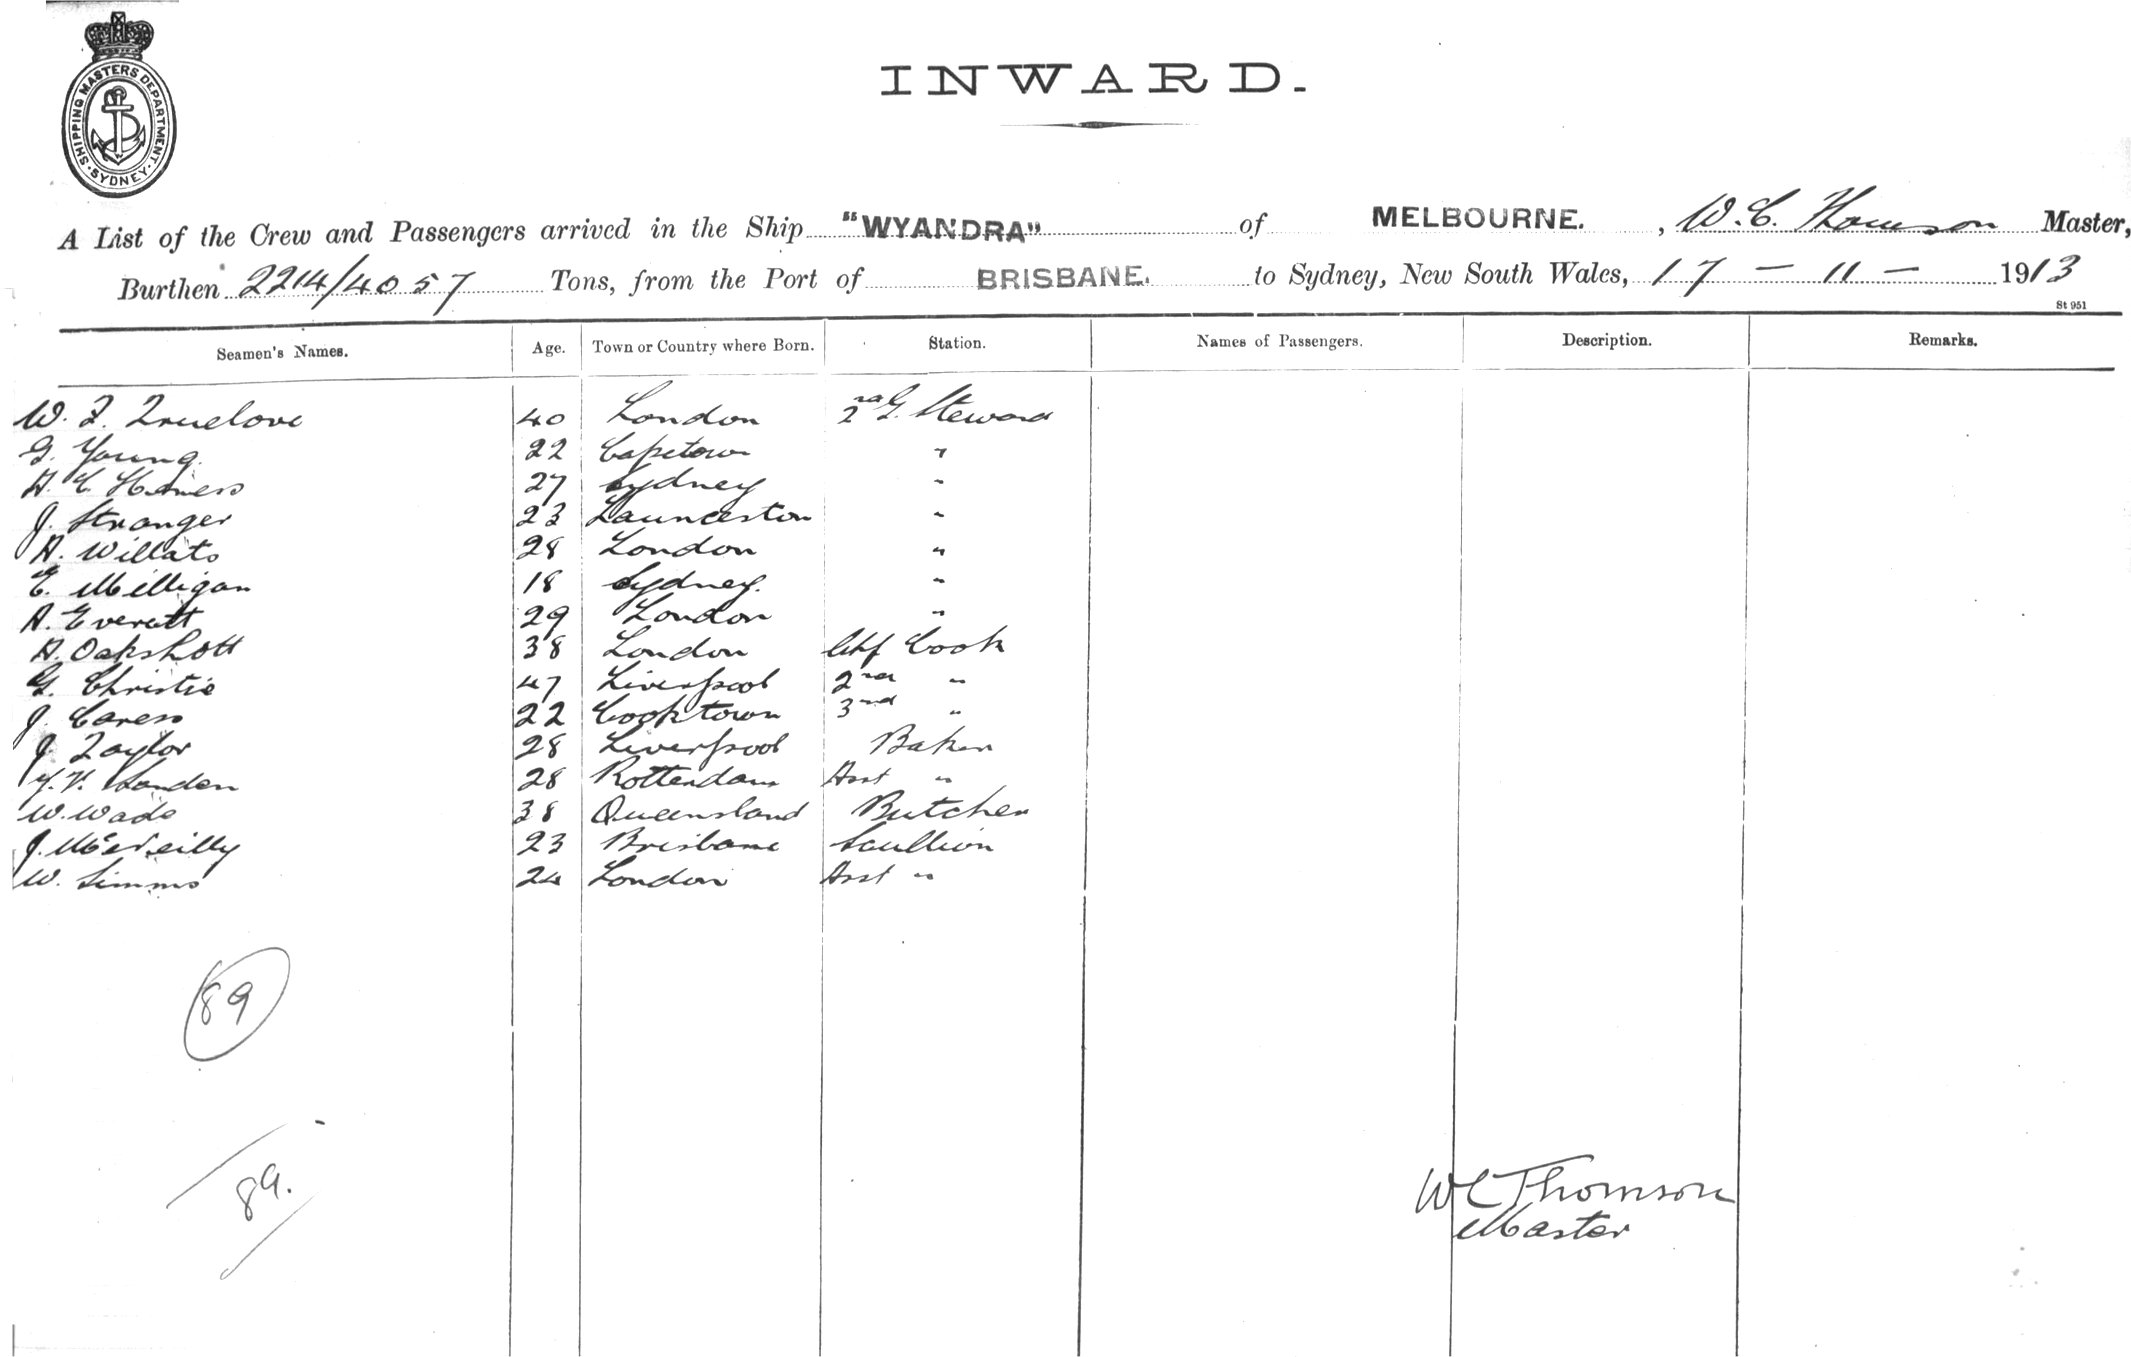 SHIPPING MASTERS DEPARTMENT · SYDNEY ·
INWARD.
A List of the Crew and Passengers arrived in the Ship "WYANDRA" of MELBOURNE. , W. C. Thomson Master,
Burthen 2214/4057 Tons, from the Port of BRISBANE. to Sydney, New South Wales, 17 – 11 – 1913
St 951
Seamen's Names. Age. Town or Country where Born. Station. Names of Passengers. Description. Remarks.
W. F. Truelove 40 London 2nd G. Steward
G. Young. 22 Capetown "
A. E. 27 Sydney "
J. Stranger 23 Launceston "
A. Willats 28 London "
E. Milligan 18 Sydney. "
A. Everett 29 London "
A. Oakshott 38 London Chf Cook
G. Christie 47 Liverpool 2nd "
J. Caress 22 Cooktown 3rd "
J. Taylor 28 Liverpool Baker
28 Rotterdam Asst "
W. Wade 38 Queensland Butcher
J. McNeilly 23 Brisbane Scullion
W. Simms 24 London Asst "
89
89.
W C Thomson
Master